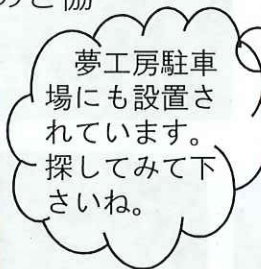 のご協
夢工房駐車
場にも設置さ
れています。
探してみて下
さいね。